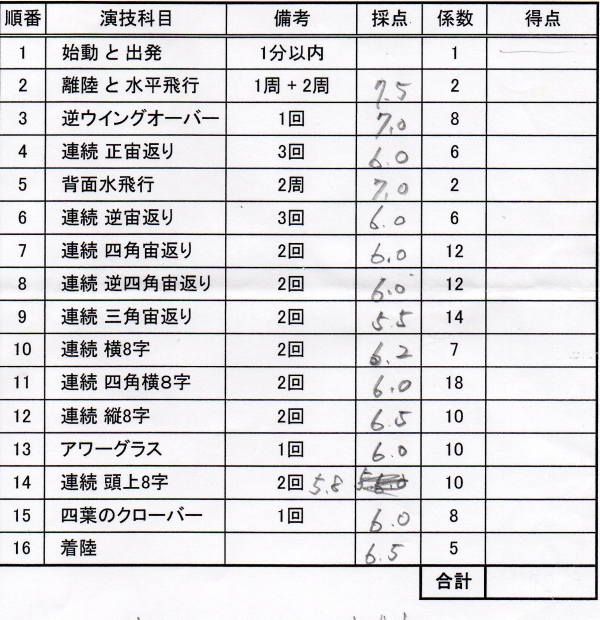 順番 演技科目 備考 採点 係数 得点
1 始動 と 出発 1分以内 1
2 離陸 と 水平飛行 1周 + 2周 7.5 2
3 逆ウイングオーバー 1回 7.0 8
4 連続 正宙返り 3回 6.0 6
5 背面水飛行 2周 7.0 2
6 連続 逆宙返り 3回 6.0 6
7 連続 四角宙返り 2回 6.0 12
8 連続 逆四角宙返り 2回 6.0 12
9 連続 三角宙返り 2回 5.5 14
10 連続 横8字 2回 6.2 7
11 連続 四角横8字 2回 6.0 18
12 連続 縦8字 2回 6.5 10
13 アワーグラス 1回 6.0 10
14 連続 頭上8字 2回 5.8 10
15 四葉のクローバー 1回 6.0 8
16 着陸 6.5 5
合計